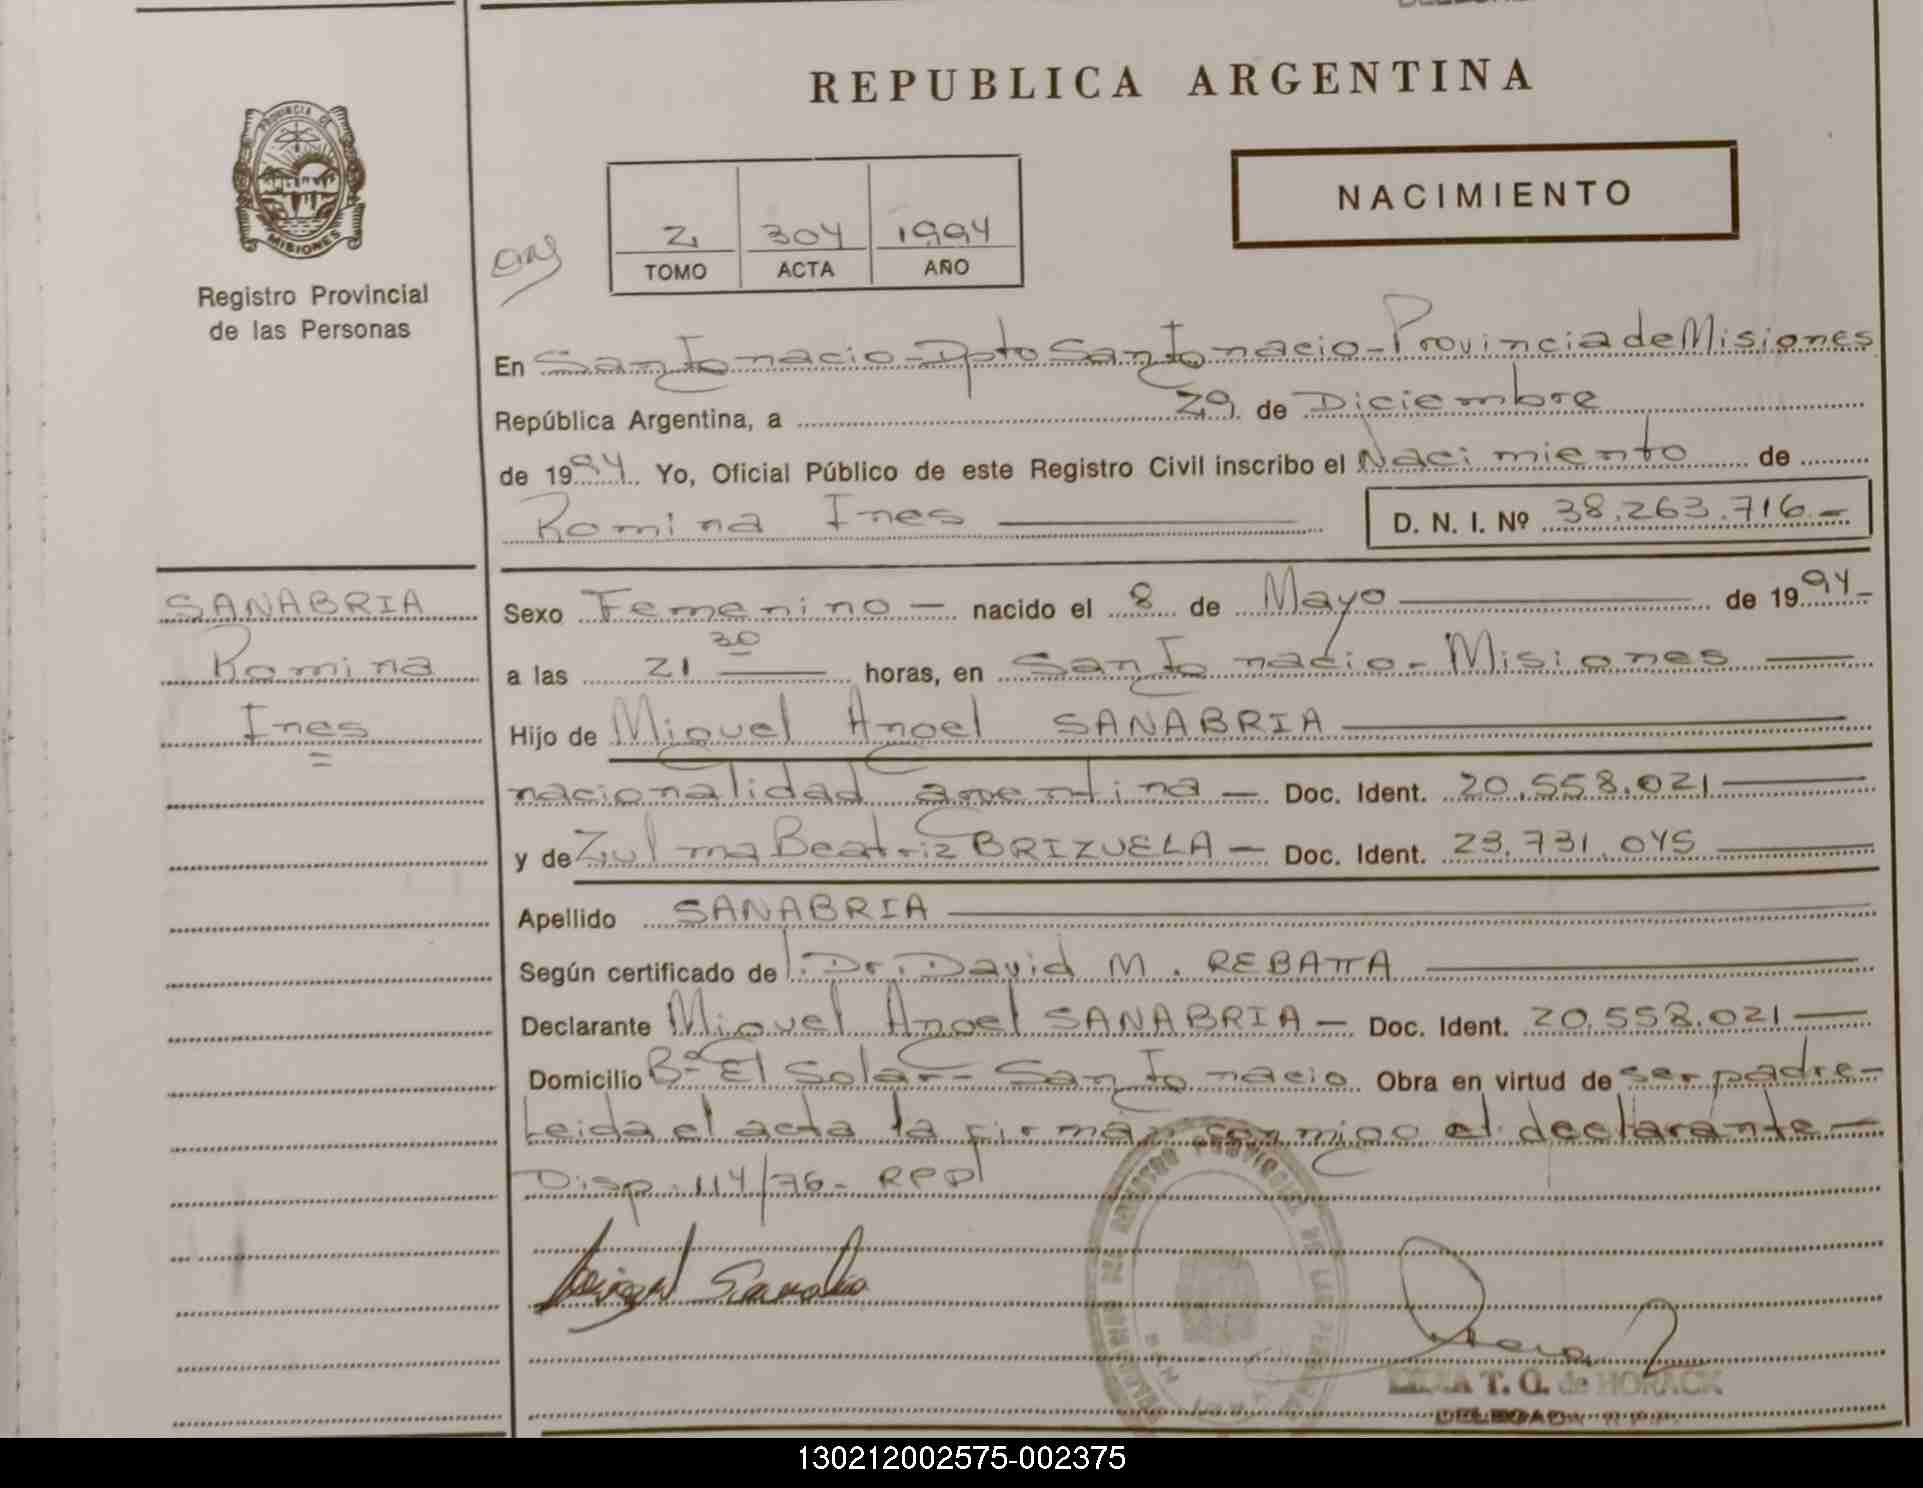 REPUBLICA ARGENTINA
PROVINCIA DE
MISIONES
Registro Provincial
de las Personas
NACIMIENTO
2 304 1994
TOMO ACTA AÑO
En San Ignacio - Dpto San Ignacio - Provincia de Misiones
República Argentina, a 29 de Diciembre
de 1994 Yo, Oficial Público de este Registro Civil inscribo el Nacimiento de
Romina Ines D. N. I. Nº 38.263.716.-
SANABRIA
Romina
Ines
Sexo Femenino - nacido el 8 de Mayo de 1994-
a las 21 30 horas, en San Ignacio - Misiones
Hijo de Miguel Angel SANABRIA
nacionalidad argentina - Doc. Ident. 20.558.021
y de Zulma Beatriz BRIZUELA - Doc. Ident. 23.731.045
Apellido SANABRIA
Según certificado de Dr. David M. REBATTA
Declarante Miguel Angel SANABRIA - Doc. Ident. 20.558.021
Domicilio Bº El Solar - San Ignacio Obra en virtud de ser padre-
Leida el acta la firman conmigo el declarante -
Disp. 114/76 - RPP
Miguel Sanabria
T. O. de HORACK
DELEGADA R.P.P.
130212002575-002375